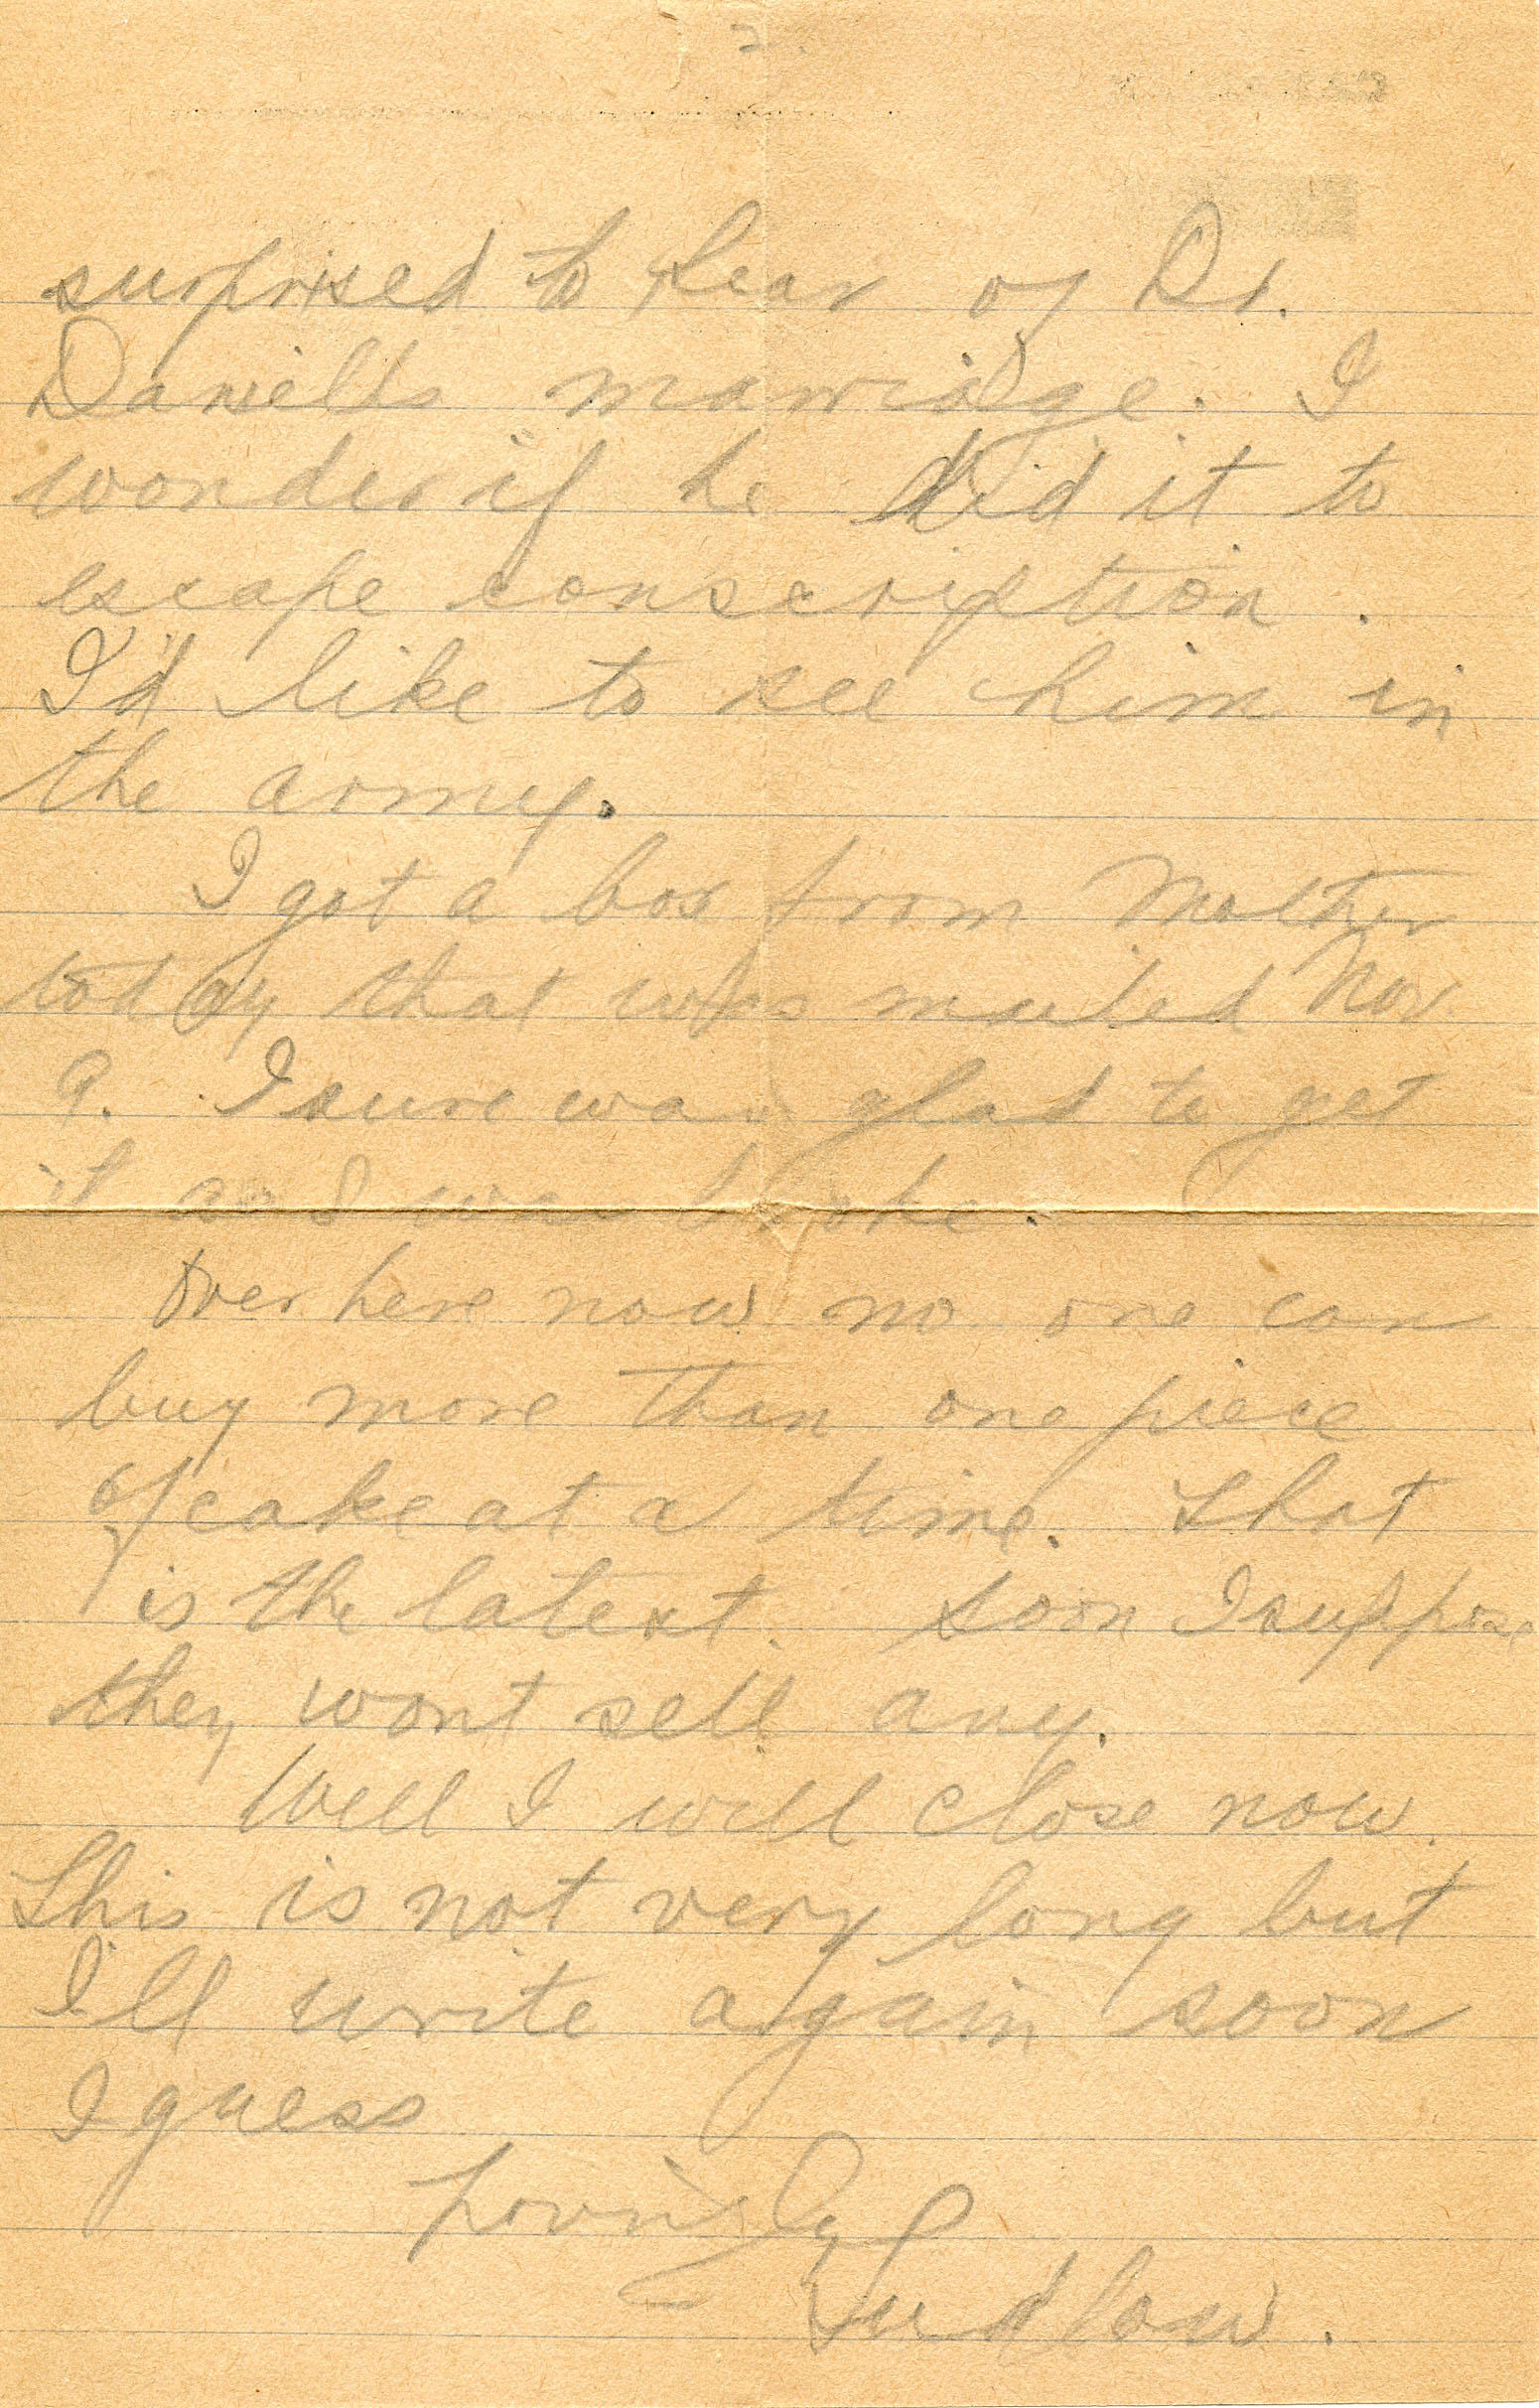 2.
surprised to hear of Dr.
Daniells marriadge. I
wonder if he did it to
escape conscription.
I'd like to see him in
the army.
I got a box from Mother
today that was mailed Nov.
9. I sure was glad to get
it as I was broke.
Over here now no one can
buy more than one piece
of cake at a time. That
is the latest. Soon I suppose
they wont sell any.
Well I will close now.
This is not very long but
I'll write again soon
I guess
Lovingly
Ludlow.